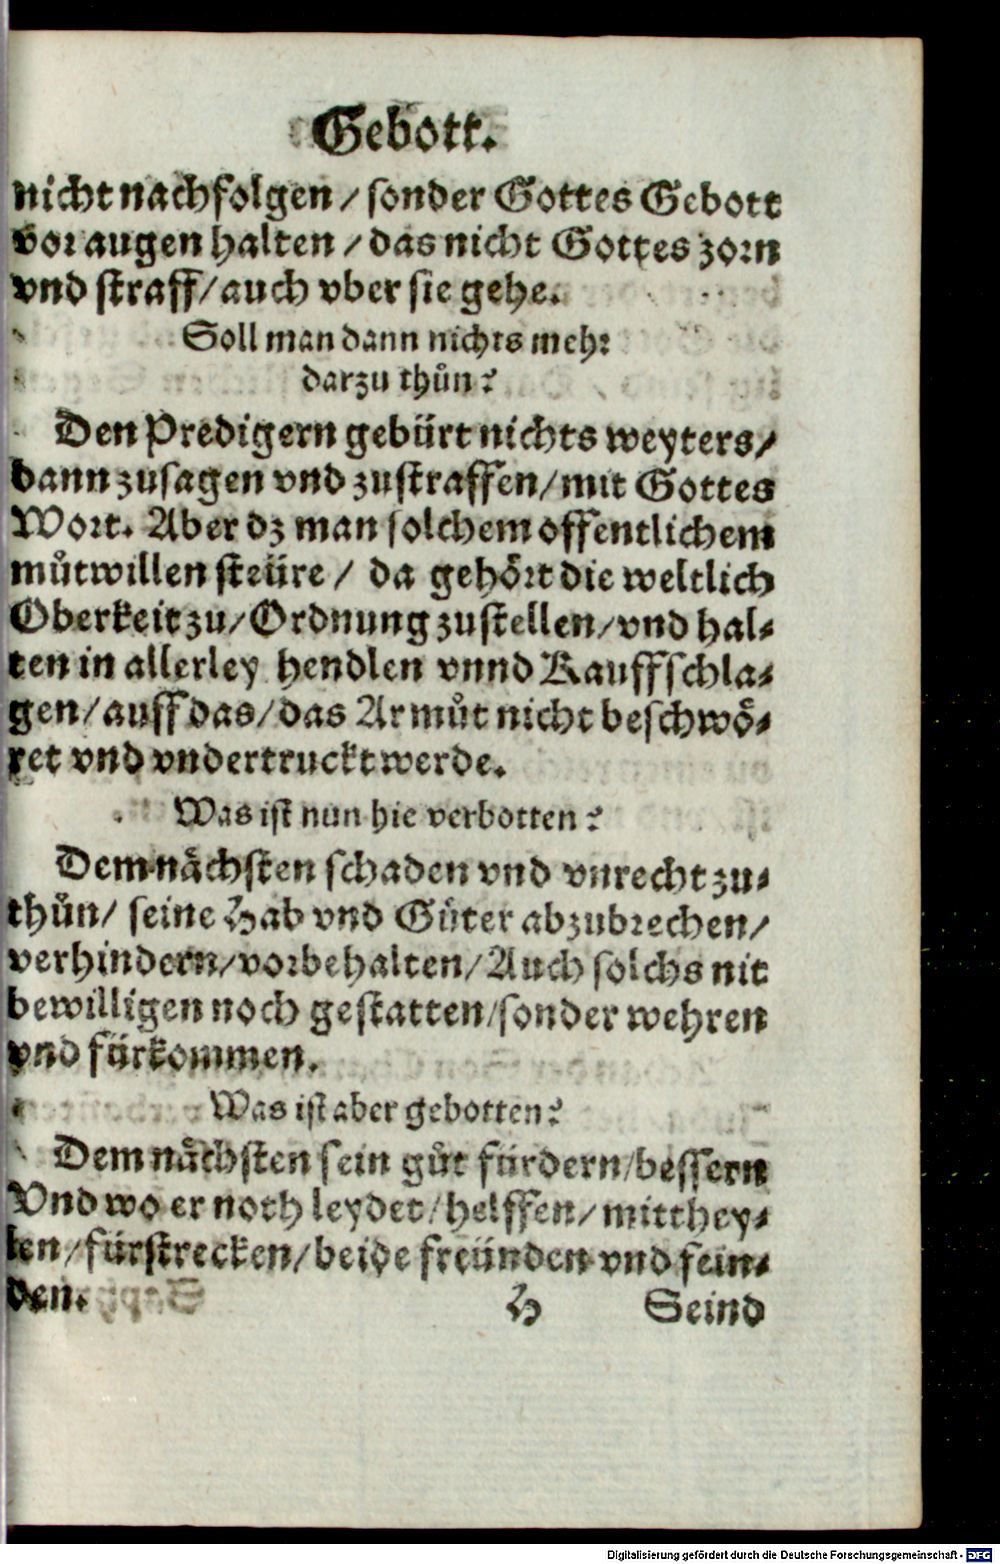 Gebott.
nicht nachfolgen / sonder Gottes Gebott
vor augen halten / das nicht Gottes zorn
vnd straff / auch vber sie gehe.
Soll man dann nichts mehr
darzu thůn?
Den Predigern gebürt nichts weyters /
dann zusagen vnd zustraffen / mit Gottes
Wort. Aber dz man solchem offentlichem
můtwillen steüre / da gehört die weltlich
Oberkeit zu / Ordnung zustellen / vnd hal-
ten in allerley hendlen vnnd Kauffschla-
gen / auff das / das Armůt nicht beschwö-
ret vnd vndertruckt werde.
Was ist nun hie verbotten?
Dem nächsten schaden vnd vnrecht zu-
thůn / seine Hab vnd Güter abzubrechen /
verhindern / vorbehalten / Auch solchs nit
bewilligen noch gestatten / sonder wehren
vnd fürkommen.
Was ist aber gebotten?
Dem nächsten sein gůt fürdern / bessern
Vnd wo er noth leydet / helffen / mitthey-
len / fürstrecken / beide freünden vnd fein-
den.
H Seind
Digitalisierung gefördert durch die Deutsche Forschungsgemeinschaft - DFG